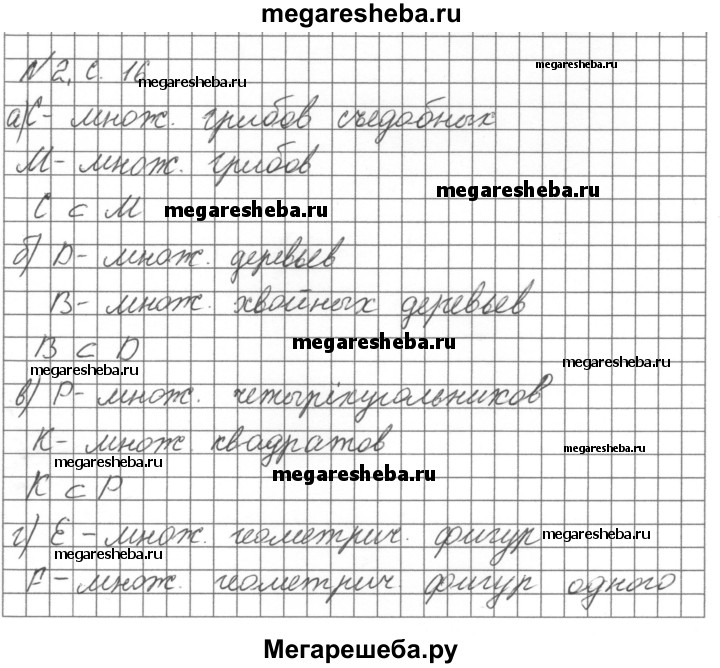 megaresheba.ru
№2, с. 16
megaresheba.ru
megaresheba.ru
а) С- множ. грибов съедобных
М- множ. грибов
megaresheba.ru
С ⊂ М
megaresheba.ru
б) D- множ. деревьев
В- множ. хвойных деревьев
megaresheba.ru
В ⊂ D
megaresheba.ru
megaresheba.ru
в) Р- множ. четырёхугольников
К- множ. квадратов
megaresheba.ru
megaresheba.ru
megaresheba.ru
К ⊂ Р
г) Е - множ. геометрич. фигур
megaresheba.ru
megaresheba.ru
F- множ. геометрич. фигур одного
Мегарешеба.ру